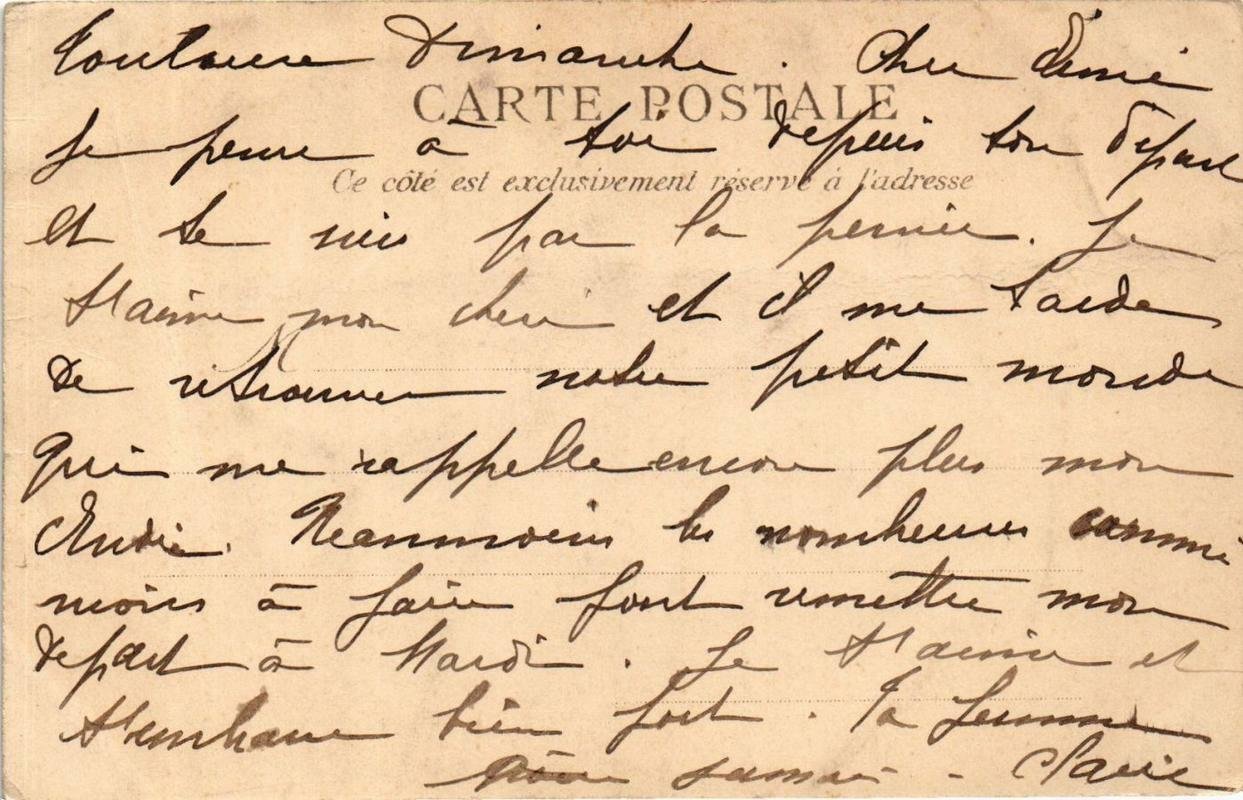 Toulouse Dimanche. Cher Aimé
CARTE POSTALE
Je pense à toi depuis ton départ
Ce côté est exclusivement réservé à l'adresse
et te suis par la pensée. Je
t'aime mon cheri et il me tarde
de retrouver notre petit monde
qui me rappelle encore plus mon
Neanmoins les nombreuses commi
ssions à faire font remettre mon
depart à Mardi. Je t'aime et
t'embrasse bien fort. Ta femme
Claire